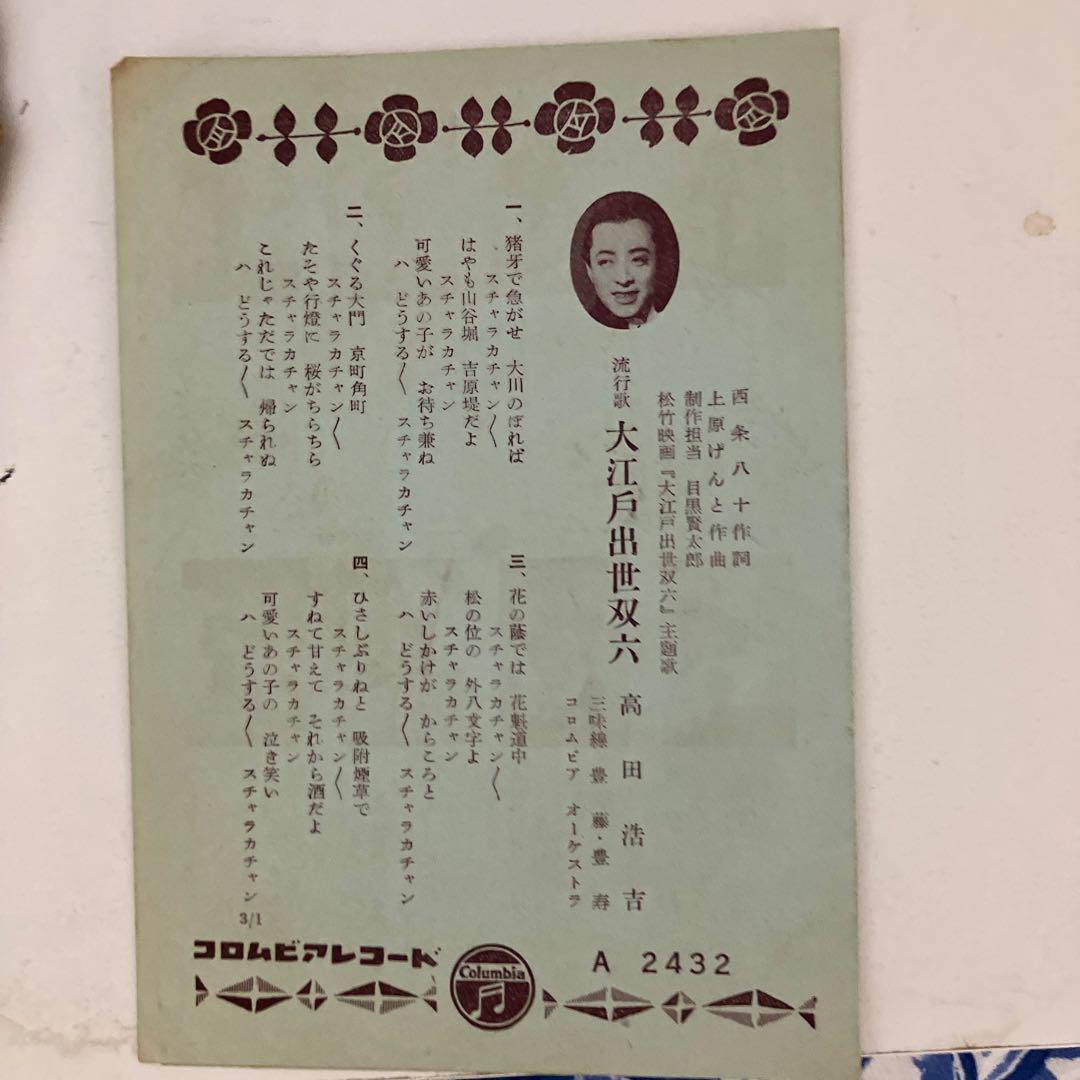 西条八十作詞
上原げんと作曲
制作担当　目黒賢太郎
松竹映画『大江戸出世双六』主題歌
流行歌　大江戸出世双六　高田浩吉
三味線　豊藤・豊寿
コロムビア　オーケストラ
一、猪牙で急がせ　大川のぼれば
スチャラカチャン〱
はやも山谷堀　吉原堤だよ
スチャラカチャン
可愛いあの子が　お待ち兼ね
ハ　どうする〱　スチャラカチャン
二、くぐる大門　京町角町
スチャラカチャン〱
たそや行燈に　桜がちらちら
スチャラカチャン
これじゃただでは　帰られぬ
ハ　どうする〱　スチャラカチャン
三、花の蔭では　花魁道中
スチャラカチャン〱
松の位の　外八文字よ
スチャラカチャン
赤いしかけが　からころと
ハ　どうする〱　スチャラカチャン
四、ひさしぶりねと　吸附煙草で
スチャラカチャン〱
すねて甘えて　それから酒だよ
スチャラカチャン
可愛いあの子の　泣き笑い
ハ　どうする〱　スチャラカチャン
3/1
コロムビアレコード
Columbia
A 2432